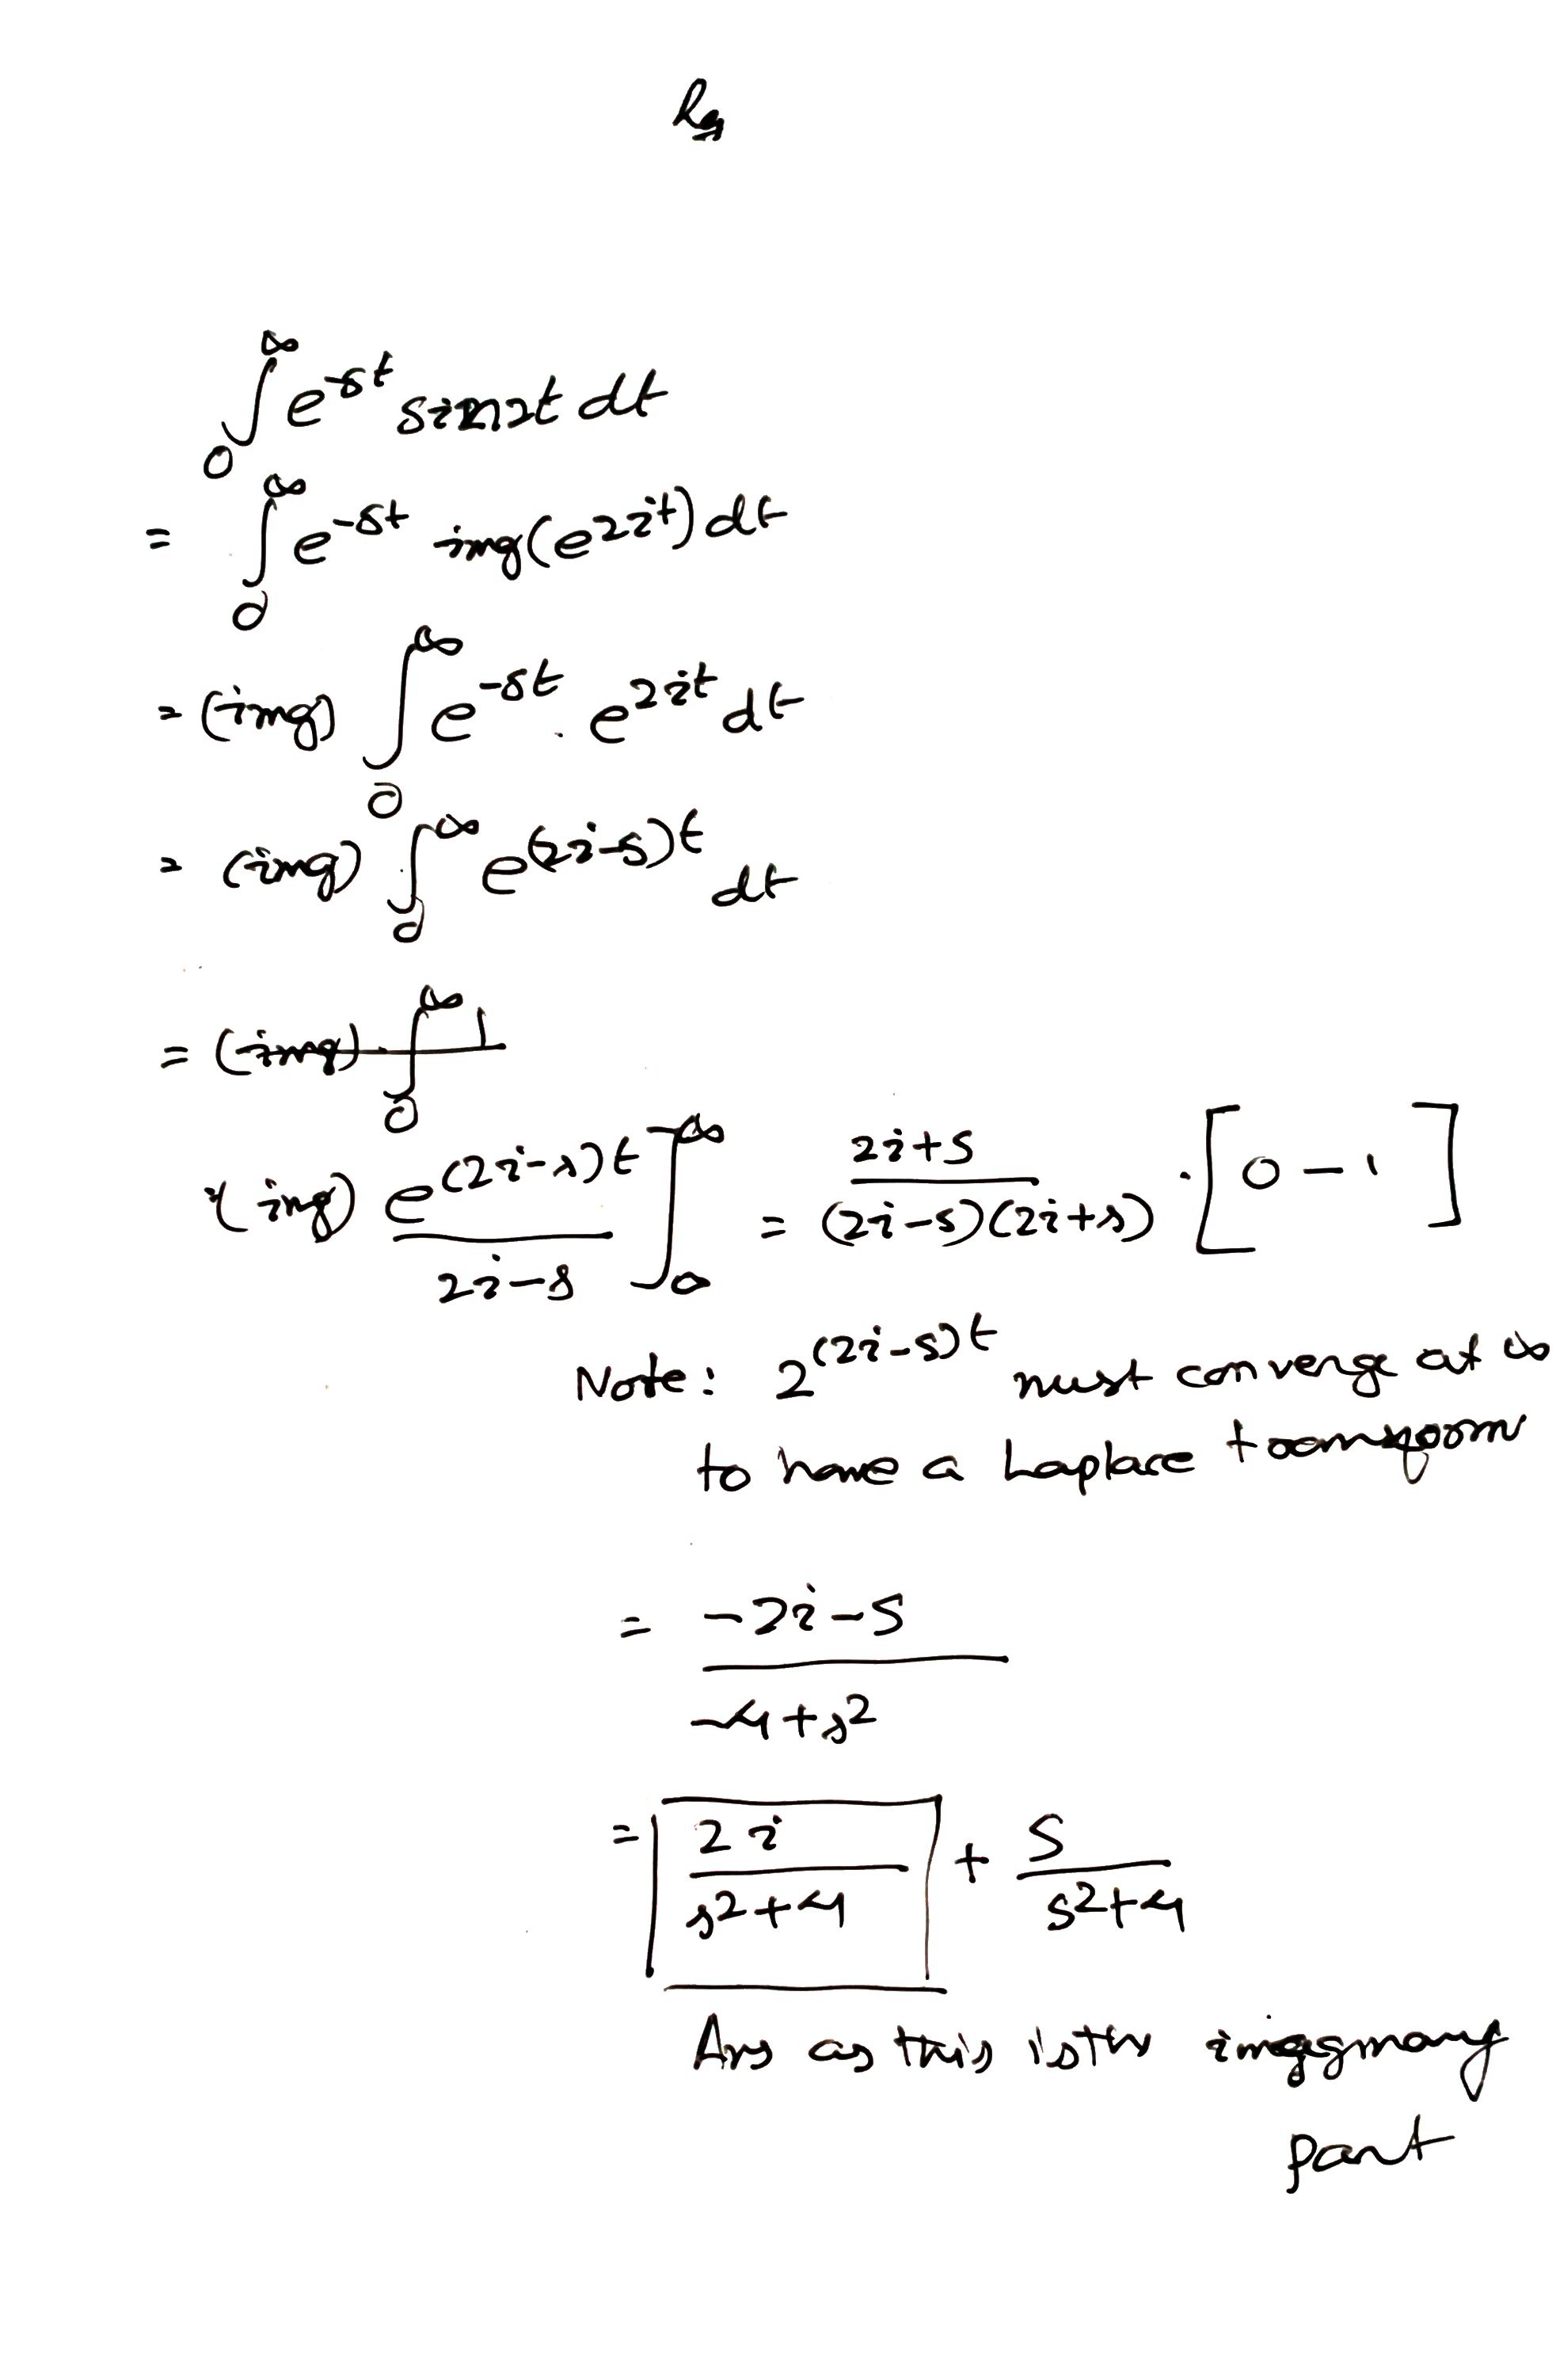 ∫₀^∞ e^{-st} sin2t dt
= ∫₀^∞ e^{-st} img(e^{2it}) dt
= (img) ∫₀^∞ e^{-st} . e^{2it} dt
= (img) ∫₀^∞ e^{(2i-s)t} dt
= (img) ∫₀^∞
(img) e^{(2i-s)t} / 2i-s ]₀^∞ = 2i+s / (2i-s)(2i+s) · [0 - 1]
Note: 2^{(2i-s)t} must converge at ∞
to have a Laplace transform
= -2i-s / -4+s²
= 2i / s²+4 + s / s²+4
Ans as this is the imaginary
part